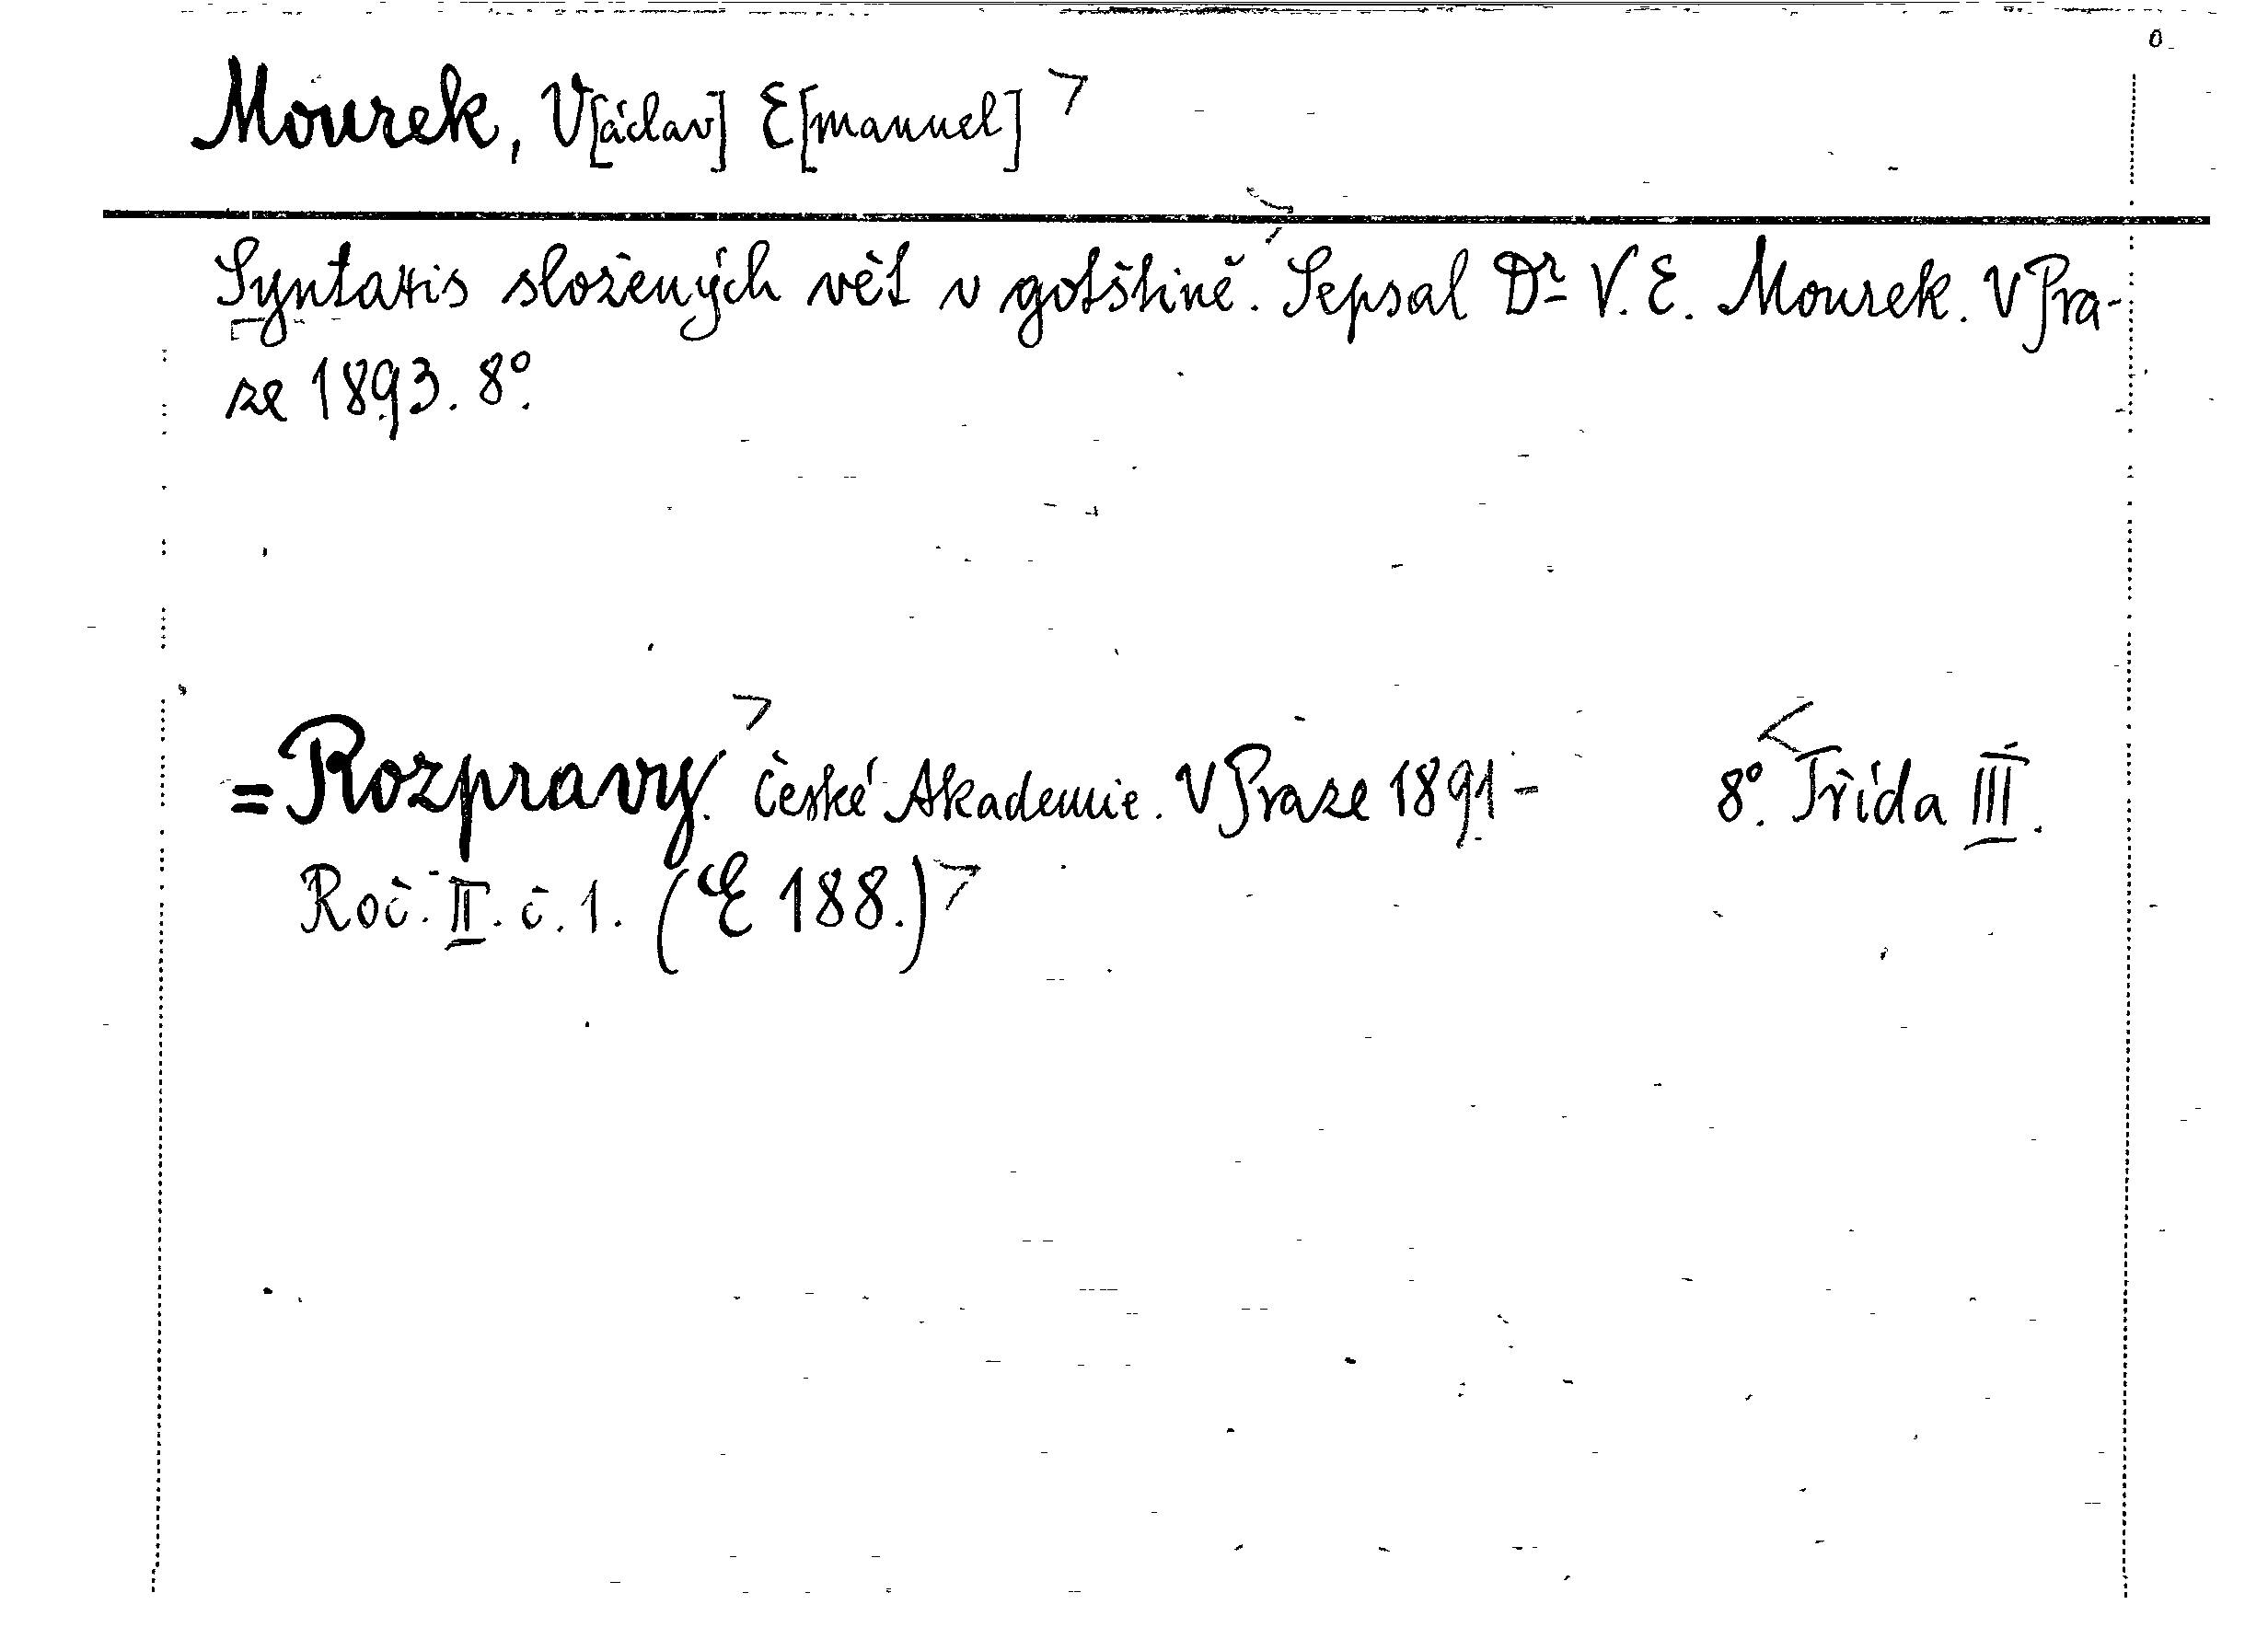 Mourek, V[áclav] E[manuel]
Syntaxis složených vět v gotštině. Sepsal Dr V. E. Mourek. V Pra-
ze 1893. 8°.
=Rozpravy. České Akademie. V Praze 1891- 8°. Třída III.
Roč. II. č. 1. (E 188.)